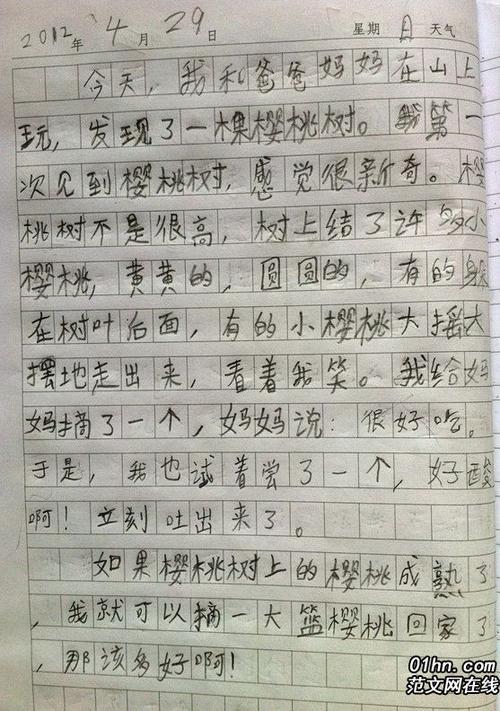 2012年 4月 29日 星期 日 天气
今天，我和爸爸妈妈在山上
玩，发现了一棵樱桃树。我第一
次见到樱桃树，感觉很新奇。樱
桃树不是很高，树上结了许多小
樱桃，黄黄的，圆圆的，有的躲
在树叶后面，有的小樱桃大摇大
摆地走出来，看着我笑。我给妈
妈摘了一个，妈妈说：很好吃。
于是，我也试着尝了一个，好酸
啊！立刻吐出来了。
如果樱桃树上的樱桃成熟了
，我就可以摘一大篮樱桃回家了
，那该多好啊！
01hn.com
范文网在线